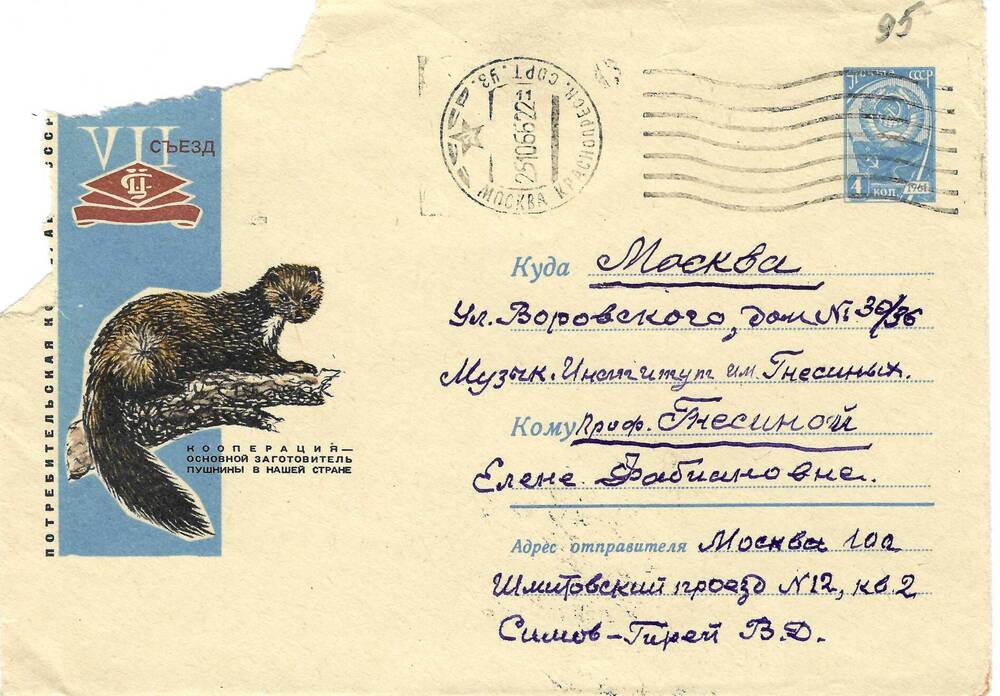 95
VII
СЪЕЗД
ПОТРЕБИТЕЛЬСКАЯ
КООПЕРАЦИЯ—
ОСНОВНОЙ ЗАГОТОВИТЕЛЬ
ПУШНИНЫ В НАШЕЙ СТРАНЕ
МОСКВА КРАСНОПРЕСН. СОРТ. УЗ.
25106622 11
ПОЧТА СССР
4 КОП. 1961
Куда Москва
Ул. Воровского, дом № 30/36
Музык. Институт им. Гнесиных.
Кому Проф. Гнесиной
Елене Фабиановне.
Адрес отправителя Москва
Шмитовский проезд N12, кв. 2
Симов-Гирей В.Д.